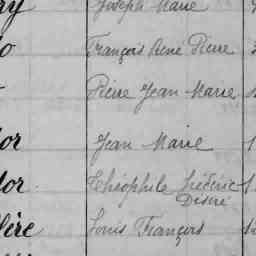 ay Joseph Marie
lo François René Pierre
Pierre Jean Marie
lor Jean Marie
lor. Théophile Frédéric 1
Désiré
lère Louis François